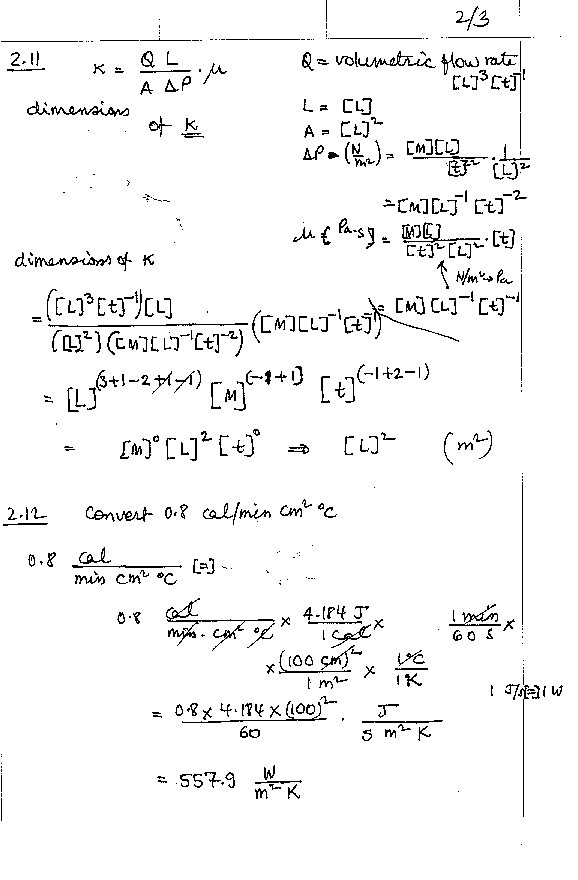 2/3
2.11 K = Q L / A ΔP · μ
Q = volumetric flow rate
[L]³[t]⁻¹
dimensions
of K
L = [L]
A = [L]²
ΔP = (N/m²) = [M][L] / [t]² · 1 / [L]²
= [M][L]⁻¹[t]⁻²
μ { Pa-s } = [M][L] / [t]²[L]² · [t]
N/m² → Pa
= [M][L]⁻¹[t]⁻¹
dimensions of K
= ([L]³[t]⁻¹)[L] / ([L]²)([M][L]⁻¹[t]⁻²) ([M][L]⁻¹[t]⁻¹)
= [L]^(3+1-2+1-1) [M]^(-1+1) [t]^(-1+2-1)
= [M]⁰[L]²[t]⁰ ⇒ [L]² (m²)
2.12 Convert 0.8 cal/min cm² °C
0.8 cal / min cm² °C [=]
0.8 cal / min · cm² °C × 4.184 J / 1 cal × 1 min / 60 s ×
× (100 cm)² / 1 m² × 1°C / 1K
1 J/s [=] 1 W
= 0.8 × 4.184 × (100)² / 60 · J / s m² K
= 557.9 W / m² K